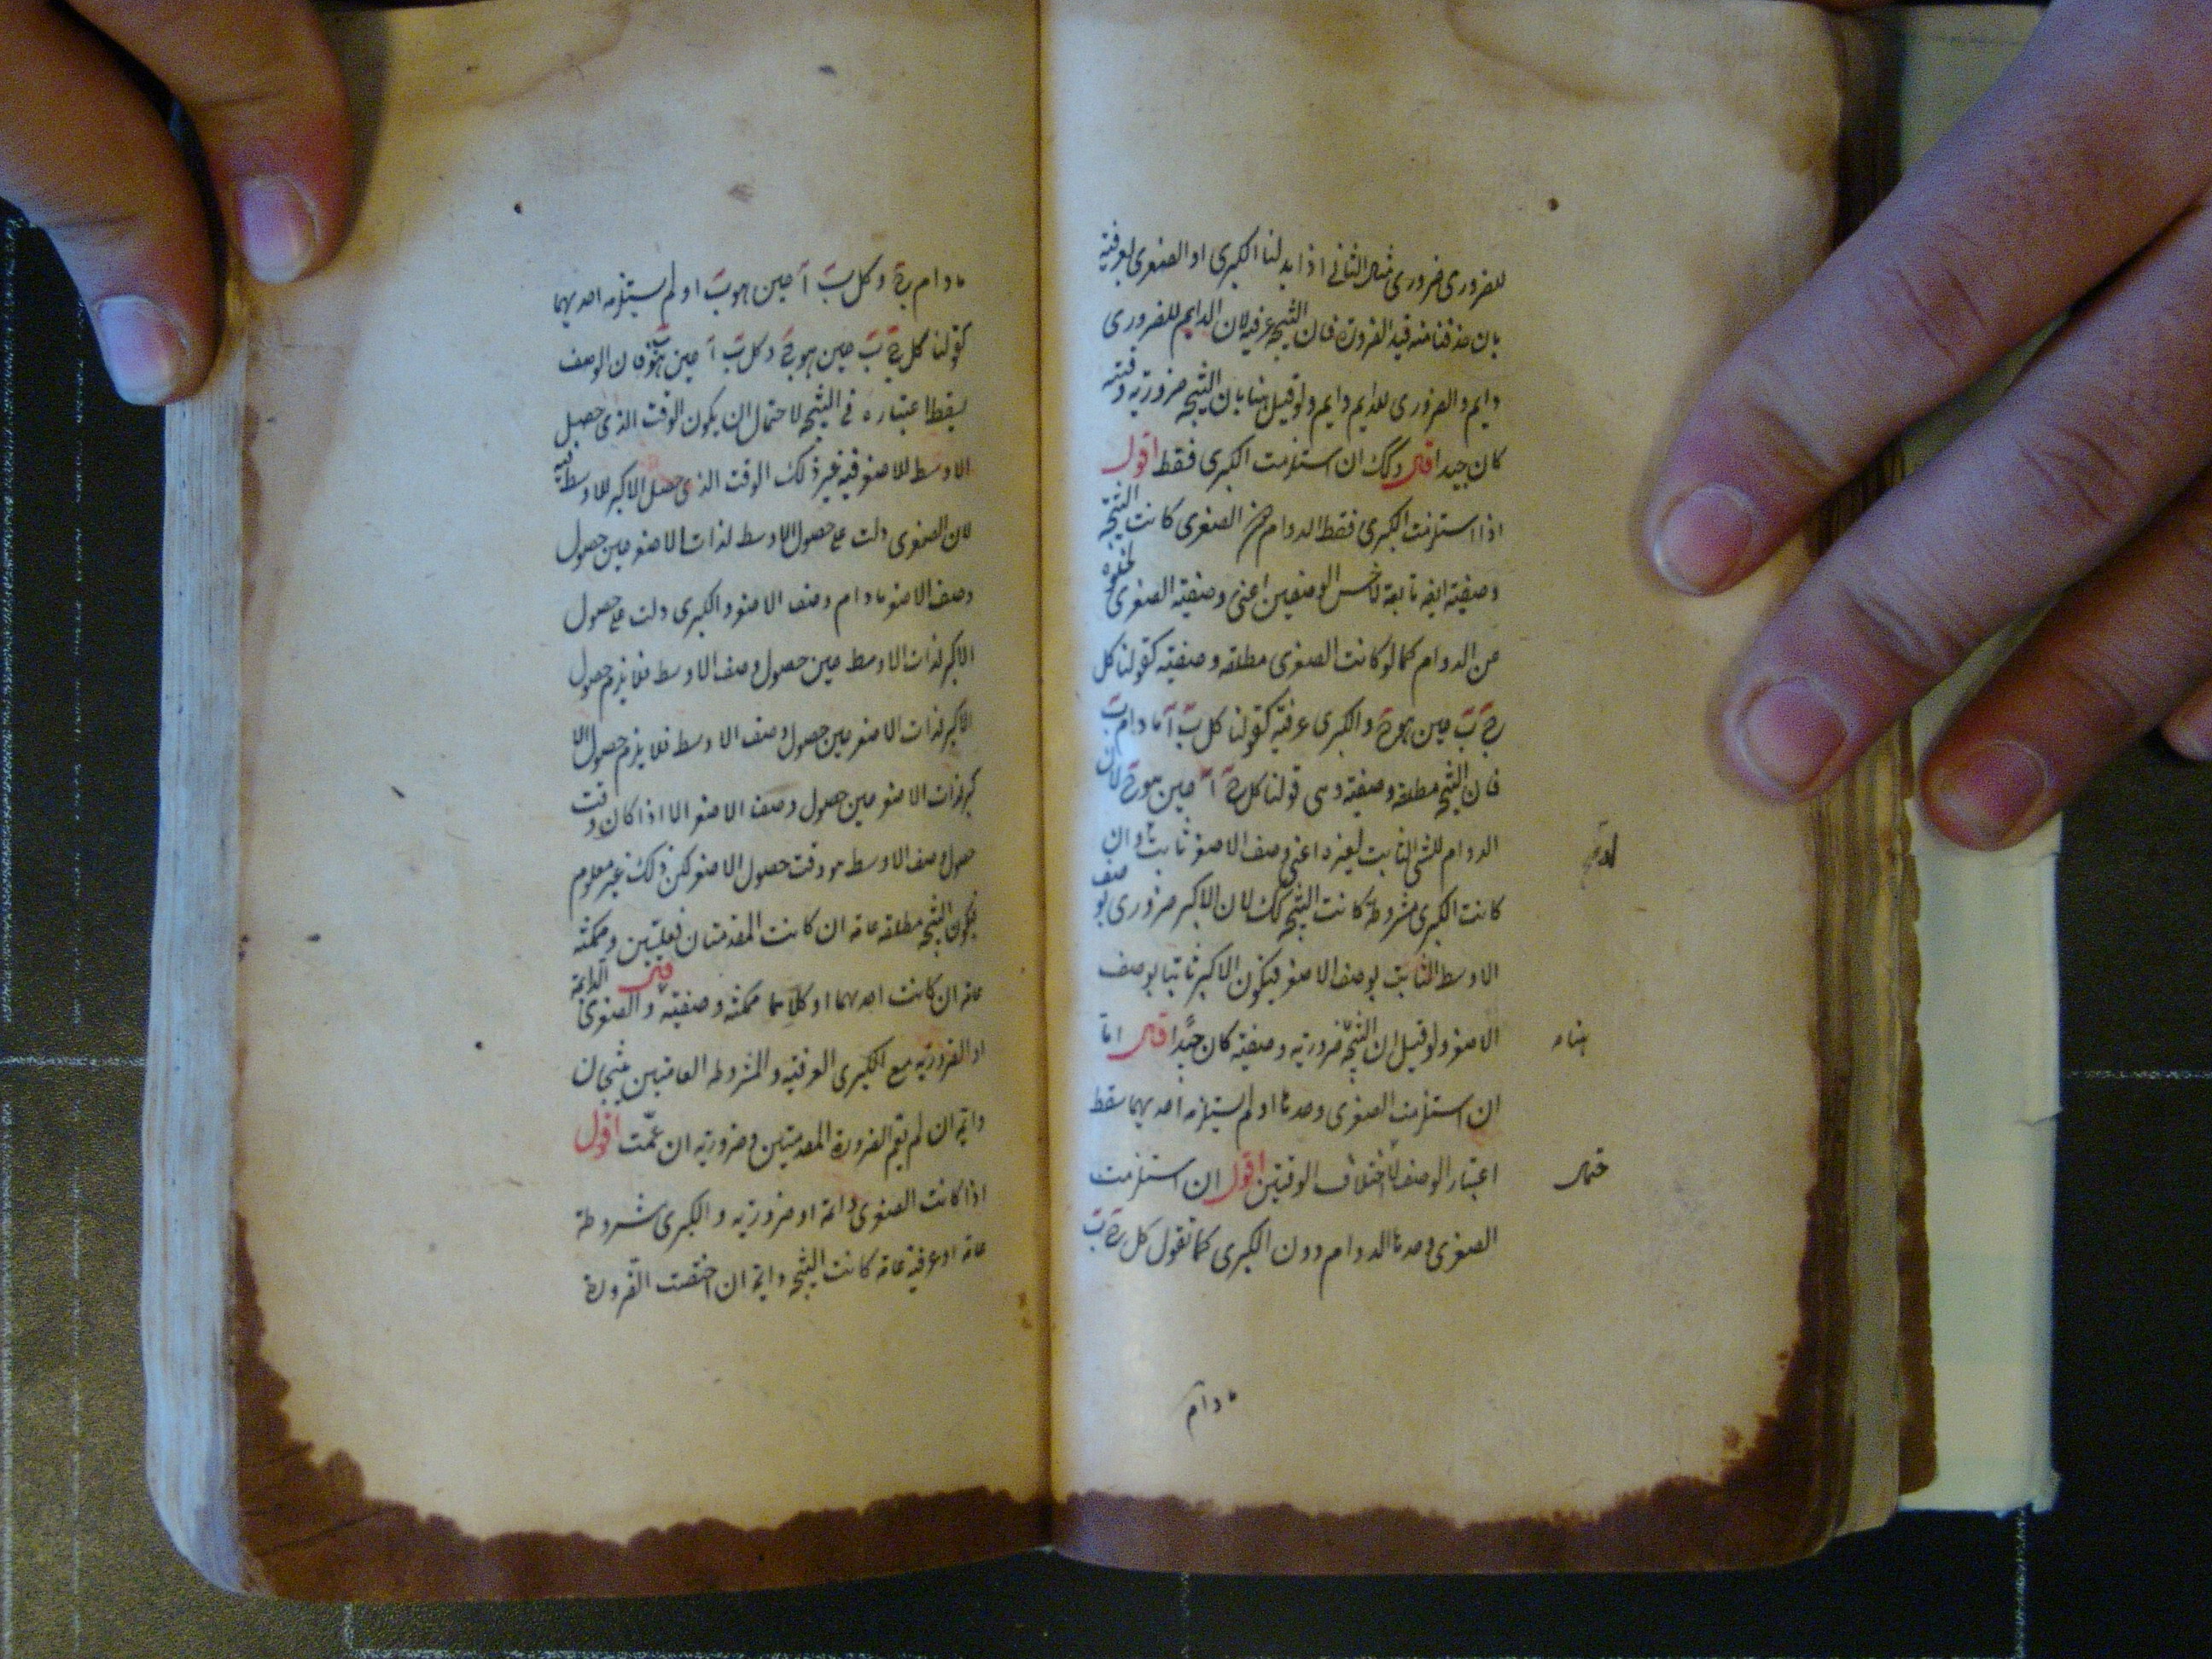 للضروری ضروری مثال الثانی اذا بدلنا الکبری او الصغری بعرفیة
بان حذفنا منه قید الضرورة فان النتیجه عرفیه لان الدایم للضروری
دایم و الضروری للدایم دایم و لو قیل هنا بان النتیجه ضروریه وقتیه
کان جیدا قال و کک ان استلزمت الکبری فقط اقول
اذا استلزمت الکبری فقط الدوام من الصغری کانت النتیجه
وصفیته ایضا تابعة لاخس الوصفیین اعنی وصفیته الصغری لخلوه
من الدوام کما لو کانت الصغری مطلقه وصفیته کقولنا کل
ج ب حین هو ج و الکبری عرفیة کقولنا کل ب آ مادام ب
فان النتیجه مطلقه وصفیته و هی قولنا کل ج آ حین هو ج لان
الدوام للشی الثابت لغیره اعنی وصف الاصغر ثابت و ان
کانت الکبری مشروطة کانت النتیجه کک لان الاکبر ضروری لوصف
الاوسط الثابت لوصف الاصغر فیکون الاکبر ثابتا لوصف
الاصغر و لو قیل ان النتیجه ضروریه وصفیته کان جیدا قال اما
هناه
ان استلزمت الصغری وحدها او لم یستلزمه احدیهما سقط
اعتبار الوصف لاختلاف الوقتین اقول ان استلزمت
الصغری وحدها الدوام دون الکبری کما تقول کل ج ب
مادام
مادام ج و کل ب آ حین هو ب او لم یستلزمه احدیهما
کقولنا کل ج ب حین هو ج و کل ب آ حین هو ب فان الوصف
یسقط اعتباره فی النتیجه لاحتمال ان یکون الوقت الذی حصل
الاوسط للاصغر فیه غیر ذلک الوقت الذی حصل الاکبر للاوسط فیه
لان الصغری دلت علی حصول الاوسط لذات الاصغر حین حصول
وصف الاصغر مادام وصف الاصغر و الکبری دلت علی حصول
الاکبر لذات الاوسط حین حصول وصف الاوسط فلا یلزم حصول
الاکبر لذات الاصغر حین حصول وصف الاوسط فلا یلزم حصول الا
کبر لذات الاصغر حین حصول وصف الاصغر الا اذا کان وقت
حصول وصف الاوسط هو وقت حصول الاصغر لکن ذلک غیر معلوم
فیکون النتیجه مطلقه عامه ان کانت المقدمتان فعلیتین و ممکنه
عامه ان کانت احدیهما او کلاهما ممکنه وصفیته قال و الصغری الدائمة
او الضروریه مع الکبری العرفیته و المشروطه العامتین ینتجان
دایمة ان لم یعم الضرورة المقدمتین و ضروریه ان عمّت اقول
اذا کانت الصغری دائمة او ضروریه و الکبری مشروطة
عامه او عرفیة عامه کانت النتیجه دایمة ان اختصت الضرورة